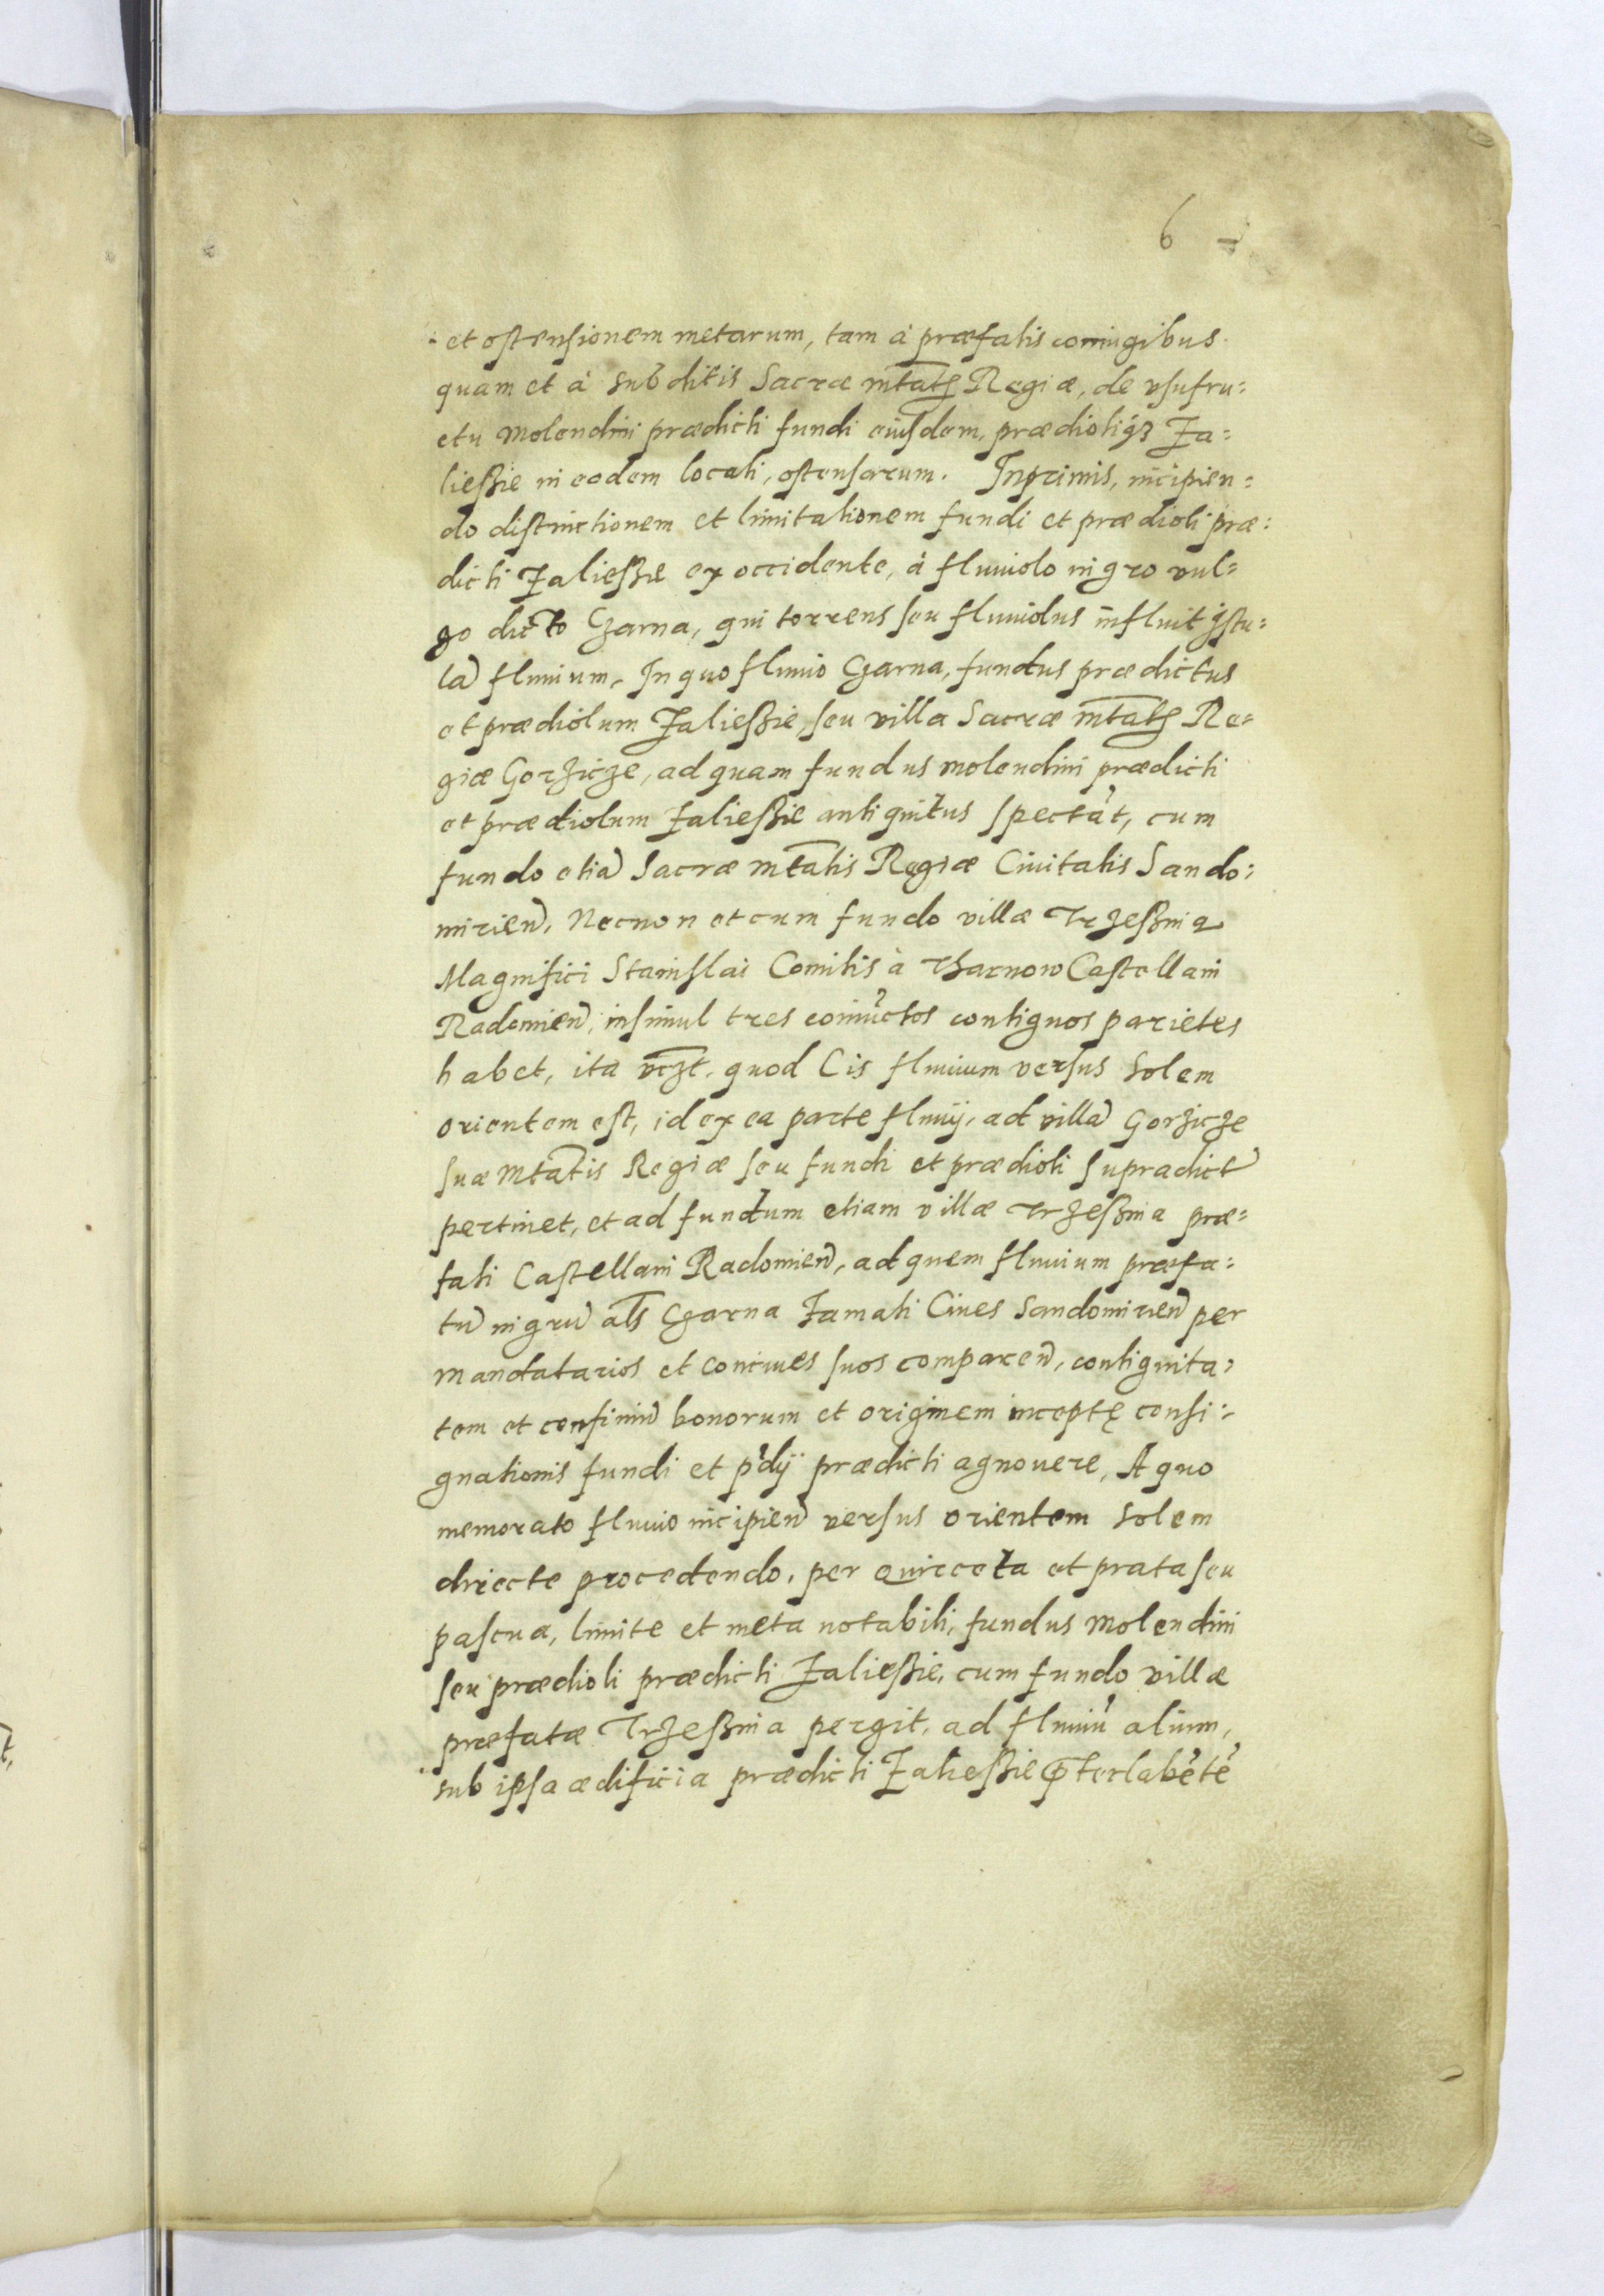 6
et ostensionem metarum, tam à præfatis coniugibus
quam et à subditis Sacræ mtatis Regiæ, de vsufru=
ctu molendini prædicti fundi eiusdem, prædioliq3 Za=
liessie in eodem locati, ostensarum. Inprimis, incipien=
do distinctionem et limitationem fundi et prædioli præ=
dicti Zaliessie ex occidente, à fluuiolo nigro vul=
go dicto Czarna, qui torrens seu fluuiolus influit Istu=
lā fluuium, In quo fluuio Czarna, fundus prædictus
et prædiolum Zaliessie, seu villa Sacræ mtatis Re=
giæ Gorzicze, ad quam fundus molendini prædicti
et prædiolum Zaliessie antiquitus spectāt, cum
fundo etiā Sacræ mtatis Regiæ Ciuitatis Sando=
mirien, Necnon et cum fundo villæ Trzessnia
Magnifici Stanislai Comitis à Tharnow Castellani
Radomien, insimul tres coniūctos contiguos parietes
habet, ita vczt. quod Cis fluuium versus Solem
orientem est, id ex ea parte fluuij, ad villā Gorzicze
suæ Mtatis Regiæ seu fundi et prædioli supradict
pertinet, et ad fundum etiam villæ Trzessnia præ=
fati Castellani Radomien, ad quem fluuium præfa=
tū nigrū als Czarna Famati Ciues Sandomirien per
mandatarios et conciues suos comparen, contiguita=
tem et confiniū bonorum et originem inceptę consi=
gnationis fundi et pdij prædicti agnouere, A quo
memorato fluuio incipien versus orientem Solem
directe procedendo, per quirceta et prata seu
pascua, limite et meta notabili, fundus Molendini
seu prædioli prædicti Zaliessie, cum fundo villæ
præfatæ Trzessnia pergit, ad fluuiū alium,
sub ipsa ædificia prædicti Zaliessie terlabētē